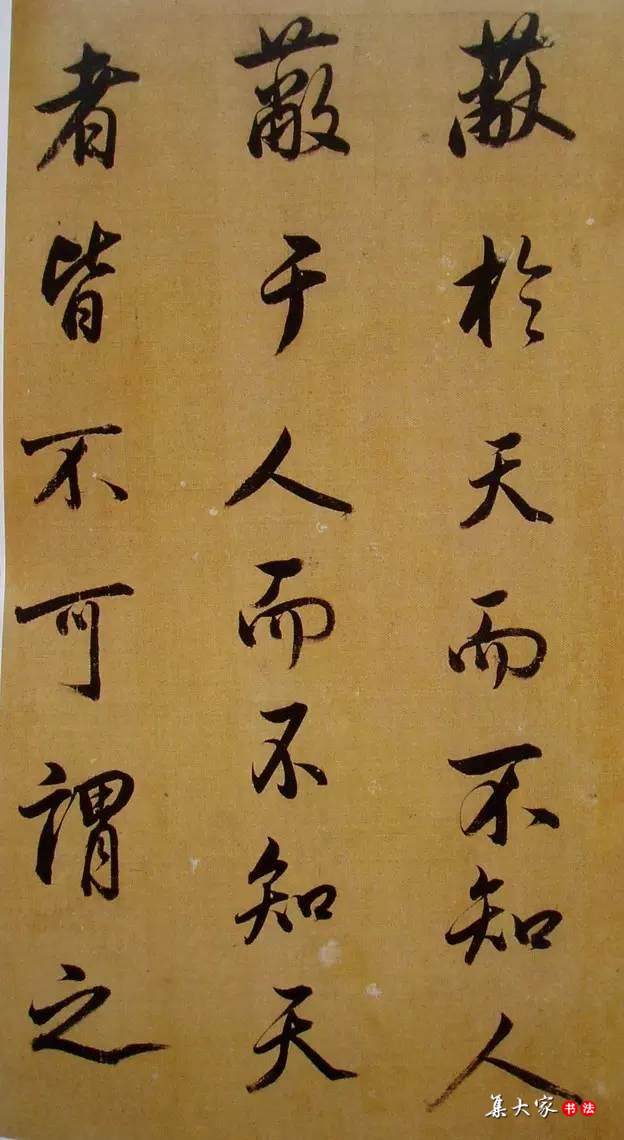 蔽於天而不知人
蔽于人而不知天
者皆不可謂之
集大家书法